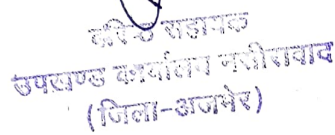 वरिष्ठ सहायक
उपखण्ड कार्यालय नसीराबाद
(जिला-अजमेर)